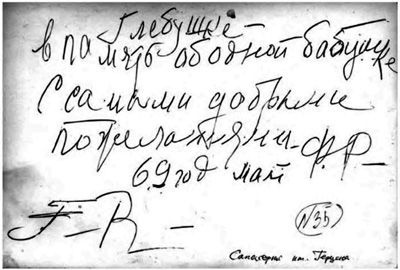 Глебушке
в память об одной бабушке
С самыми добрыми
пожеланиями – Ф.Р –
69 год май
F – R –
N 35
Санаторий им. Герцена